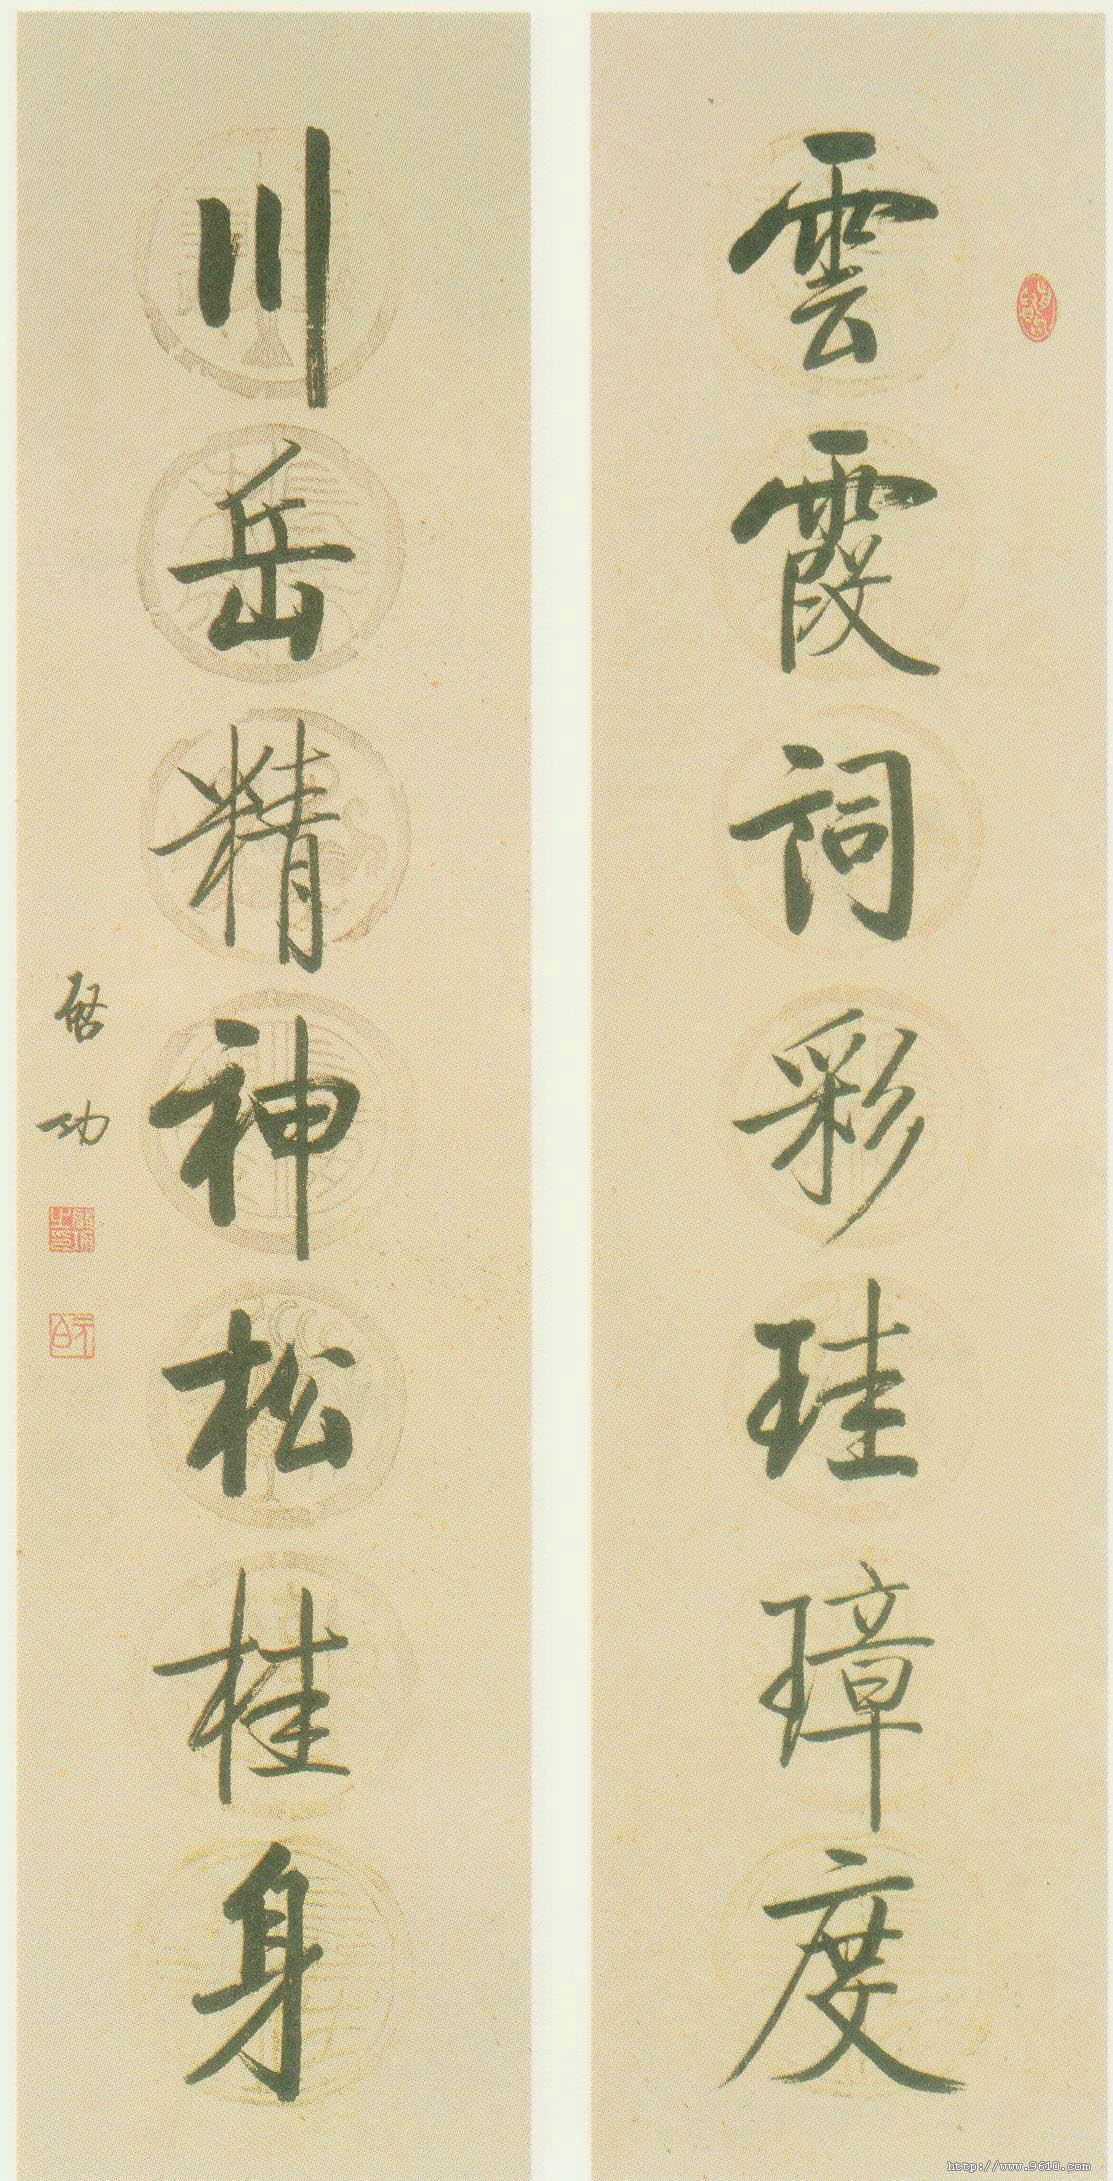 雲霞詞彩珪璋度
川岳精神松桂身
啓功
http://www.9610.com